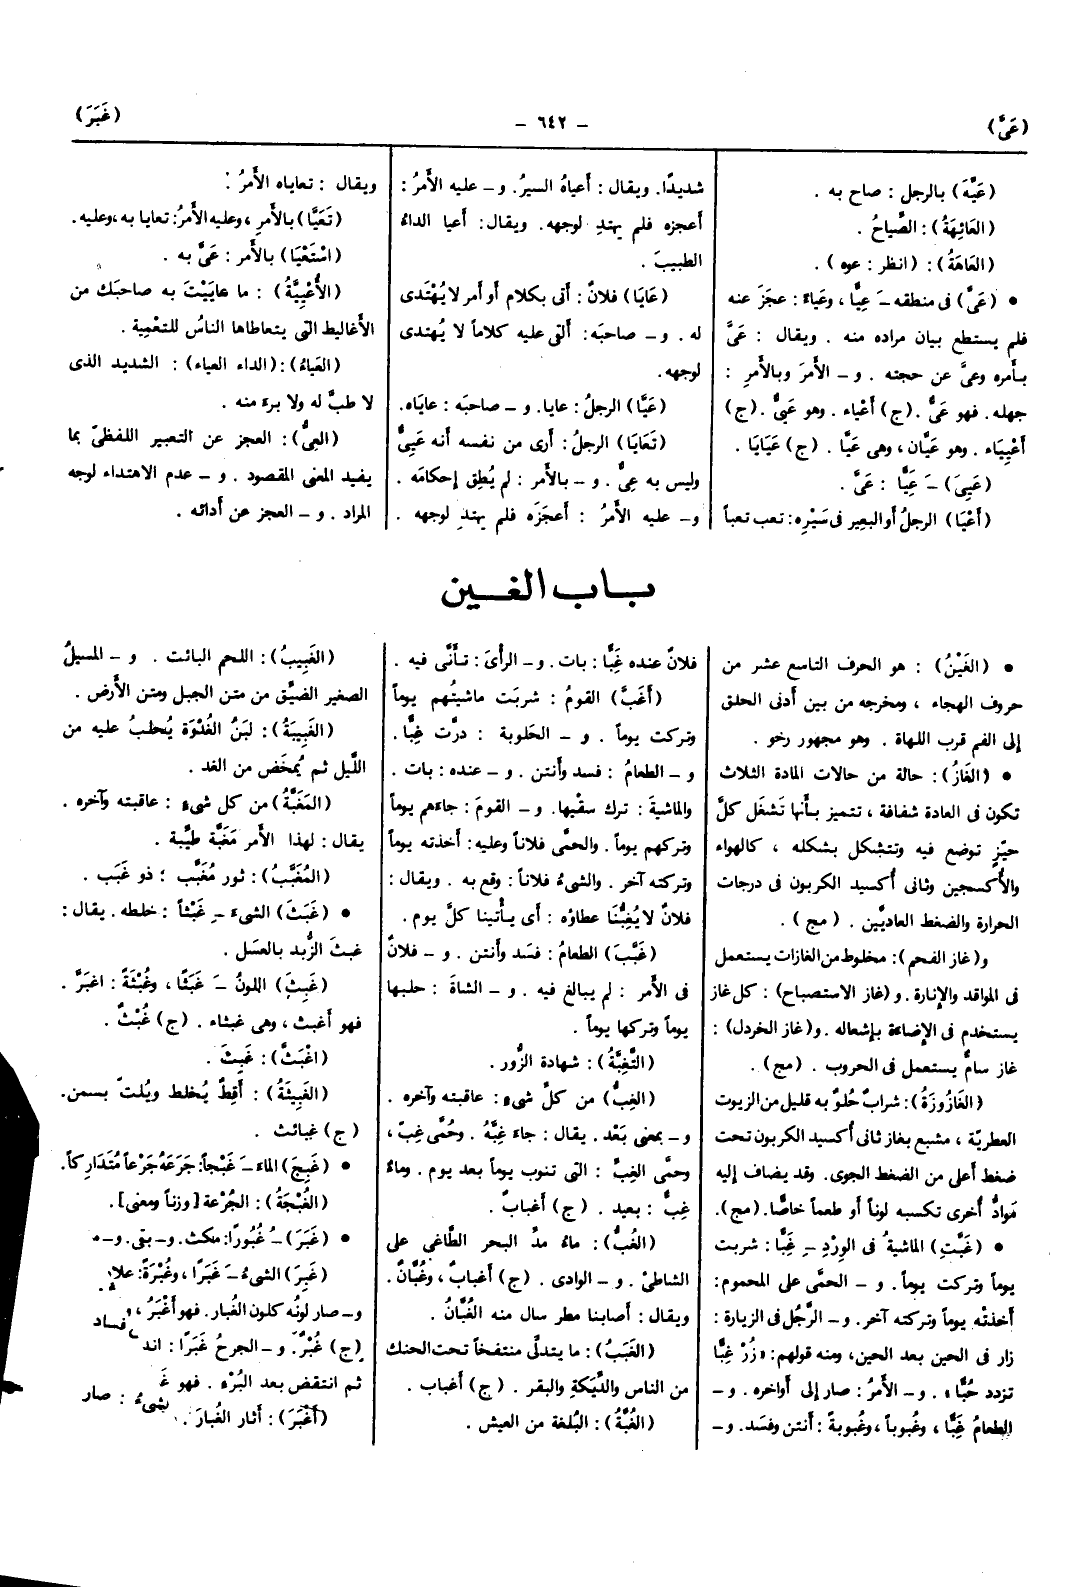 (عَىَّ)
– ٦٤٢ –
(غَبَرَ)
(عَيَّهَ) بالرجل : صاح به .
(العَائِهَةُ) : الصِّياحُ .
(العَاهَةُ) : (انظر : عوه) .
• (عَىَّ) فى منطقه ـَ عِيًّا ، وعَياءً : عجَزَ عنه
فلم يستطع بيان مراده منه . ويقال : عَىَّ
بأمره وعىَّ عن حجته . و – الأمرَ وبالأمرِ :
جهله . فهو عَىٌّ . (ج) أعْياء . وهو عَيِىٌّ . (ج)
أعْيِيَاء . وهو عَيَّان ، وهى عَيَّا . (ج) عَيَايَا .
(عَيِىَ) ـَ عِيًّا : عَىَّ .
(أعْيَا) الرجلُ أو البعير فى سَيْرِه : تعب تعباً
شديدًا. ويقال : أعياهُ السيرُ. و – عليه الأمرُ :
أعجزه فلم يهتدِ لوجهه. ويقال: أعيا الداءُ
الطبيبَ .
(عَايَا) فلانٌ : أتى بكلام أو أمر لا يُهْتَدى
له . و – صاحبَه : ألقى عليه كلاماً لا يُهتدى
لوجهه.
(عَيَّا) الرجلُ : عايا. و – صاحبَه : عاياه.
(تَعَايَا) الرجلُ : أرى من نفسه أنه عَيِىٌّ
وليس به عِىٌّ . و – بالأمر : لم يُطِق إحكامَه .
و – عليه الأمرُ : أعجَزَه فلم يهتدِ لوجهه .
ويقال : تعاياه الأمرُ .
(تَعَيَّا) بالأمرِ ، وعليه الأمرُ : تعايا به ، وعليه.
(اسْتَعْيَا) بالأمر : عَىَّ به .
(الأُعْيِيَّةُ) : ما عاييْتَ به صاحبَك من
الأغاليط التى يتعاطاها الناسُ للتعْمِية .
(العَيَاءُ) : (الداء العياء) : الشديد الذى
لا طبَّ له ولا برءَ منه .
(العِىُّ) : العجز عن التعبير اللفظىّ بما
يفيد المعنى المقصود . و – عدم الاهتداء لوجه
المراد . و – العجز عن أدائه .
باب الغين
• (الغَيْنُ) : هو الحرف التاسع عشر من
حروف الهجاء ، ومخرجه من بين أدنى الحلق
إلى الفم قرب اللهاة . وهو مجهور رخو .
• (الغَازُ) : حالة من حالات المادة الثلاث
تكون فى العادة شفافة ، تتميز بأنها تَشغَل كلَّ
حيّزٍ توضع فيه وتتشكل بشكله ، كالهواء
والأُكسجين وثانى أُكسيد الكربون فى درجات
الحرارة والضغط العاديَّين . (مج) .
و (غاز الفحم) : مخلوط من الغازات يستعمل
فى المواقد والإنارة . و (غاز الاستصباح) : كل غاز
يستخدم فى الإضاءة بإشعاله . و (غاز الخردل) :
غاز سامٌّ يستعمل فى الحروب . (مج) .
(الغَازُوزَةُ) : شرابٌ حُلوٌ به قليل من الزيوت
العطريّة ، مشبع بغاز ثانى أُكسيد الكربون تحت
ضغط أعلى من الضغط الجوى. وقد يضاف إليه
مَوادُّ أُخرى تكسبه لوناً أو طعماً خاصًّا. (مج).
• (غَبَّتِ) الماشيةُ فى الوِرْدِ ـِ غِبًّا : شربت
يوماً وتركت يوماً. و – الحمَّى على المحموم:
أخذتْه يوماً وتركته آخر. و – الرَّجُل فى الزيارة :
زار فى الحين بعد الحين، ومنه قولهم: «زُرْ غِبًّا
تزدد حُبًّا» . و – الأمرُ : صار إلى أواخره . و –
الطعامُ غَبًّا ، وغُبوباً ، وغُبوبةً : أنتن وفسَد. و –
فلانٌ عنده غِبًّا : بات. و – الرأىَ : تأنَّى فيه .
(أغَبَّ) القومُ : شربَت ماشيتُهم يوماً
وتركت يوماً . و – الحَلوبة : درَّت غِبًّا.
و – الطعامُ : فسد وأنتن . و – عنده : بات .
والماشيةَ : ترك سقْيها. و – القومَ : جاءهم يوماً
وتركهم يوماً. والحمَّى فلاناً وعليه : أخذته يوماً
وتركته آخر. والشىءُ فلاناً : وقع به . ويقال :
فلانٌ لا يُغِبُّنَا عطاؤه : أى يأتينا كلَّ يوم .
(غَبَّبَ) الطعامُ : فسَد وأنتن . و – فلانٌ
فى الأمر : لم يبالغ فيه . و – الشاةَ : حلبها
يوماً وتركها يوماً.
(التَّغِبَّةُ) : شهادة الزُّور .
(الغِبُّ) من كلِّ شىءٍ : عاقبته وآخره .
و – بمعنى بَعْد. يقال : جاءَ غِبَّهُ . وحُمَّى غِبّ ،
وحمَّى الغِبِّ : التى تنوب يوماً بعد يوم . وماءٌ
غِبٌّ : بعيد . (ج) أغبابٌ .
(الغُبُّ) : ماءُ مدِّ البحر الطَّاغى على
الشاطئ . و – الوادى . (ج) أغبابٌ ، وغُبَّانٌ .
ويقال : أصابنا مطر سال منه الغُبَّانُ .
(الغَبَبُ) : ما يتدلَّى منتفخاً تحت الحنك
من الناس والدِّيَكةِ والبقر . (ج) أغباب .
(الغُبَّةُ) : البُلغة من العيش .
(الغَبِيبُ) : اللحم البائت . و – المسيلُ
الصغير الضيِّق من متن الجبل ومتن الأرض .
(الغَبِيبَةُ) : لبَنُ الغُدْوَة يُحلبُ عليه من
اللَّيل ثم يُمخَض من الغد .
(المَغَبَّةُ) من كل شىءٍ : عاقبته وآخره .
يقال : لهذا الأمر مَغَبَّة طيِّبة .
(المُغَبَّبُ) : ثور مُغَبَّب ؛ ذو غَبَب .
• (غَبَثَ) الشىءَ ـِ غَبْثاً : خلطه . يقال :
غبثَ الزُّبد بالعسَل .
(غَبِثَ) اللونُ ـَ غَبَثًا ، وغُبْثَةً : اغبَرَّ .
فهو أغبث ، وهى غبثاء . (ج) غُبْثٌ .
(اغْبَثَّ) : غَبِثَ .
(الغَبِيثَةُ) : أقِطٌ يُخلط ويُلتّ بسمن.
(ج) غبائث .
• (غَبِجَ) الماءَ ـَ غَبْجاً: جَرَعَهُ جَرْعاً مُتَدَارِكاً.
(الغُبْجَةُ) : الجُرْعة [وزناً ومعنى] .
• (غَبَرَ) ـُ غُبُورًا : مكث. و – بقى. و –
(غَبِرَ) الشىءُ ـَ غَبَرًا ، وغُبْرَةً : علا
و – صار لونُه كلون الغُبار. فهو أغْبَرُ ،
(ج) غُبْرٌ. و – الجرحُ غَبَرًا : اند فساد
ثم انتقض بعد البُرْء . فهو
(أغْبَرَ) : أثار الغُبارَ . شىءُ : صار